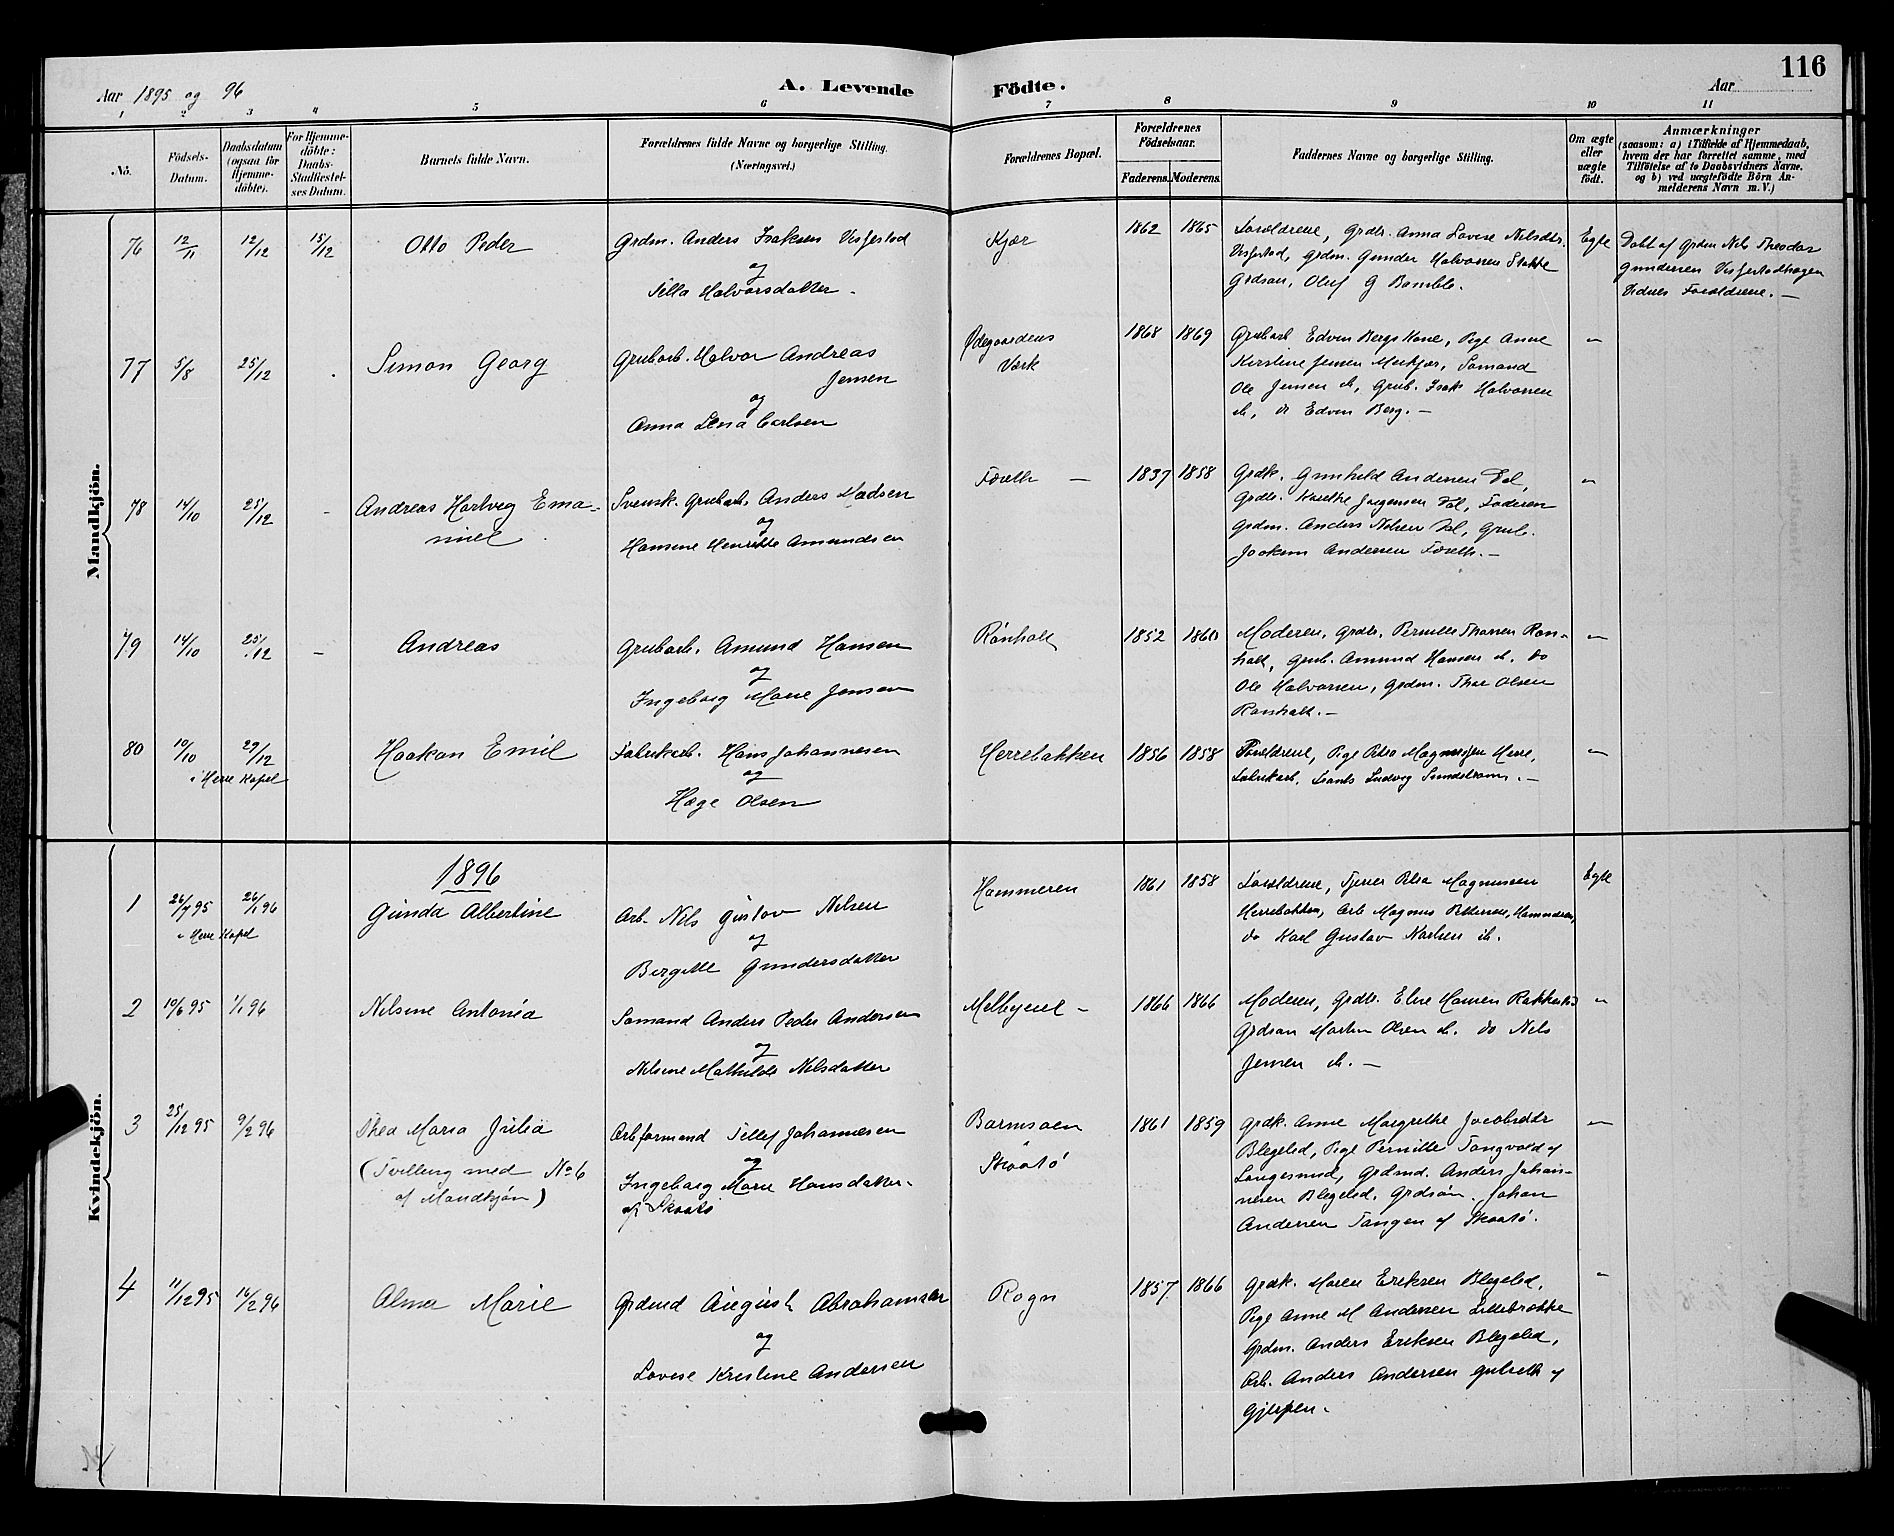 116
Aar 1895 og 96
A. Levende
Födte.
Aar
1 2 3 4 5 6 7 8 9 10 11
No.
Födsels-
Datum.
Daabsdatum
(ogsaa for
Hjemme-
döbte).
For Hjemme-
döbte:
Daabs-
Stadfæstel-
ses Datum.
Barnets fulde Navn.
Forældrenes fulde Navne og borgerlige Stilling.
(Næringsvei.)
Forældrenes Bopæl.
Forældrenes
Födselsaar.
Faderens. Moderens.
Faddernes Navne og borgerlige Stilling.
Om ægte
eller
uægte
födt.
Anmærkninger
(saasom: a) i Tilfælde af Hjemmedaab,
hvem der har forrettet samme, med
Tilföielse af to Daabsvidners Navne.
og b) ved uægtefödte Börn An-
melderens Navn m. V.)
Mandkjön.
76 12/11 12/12 15/12
Otto Peder
Grdm. Anders Isaksen
og
Halvorsdatter -
Kjær
1862 1865
Forældrene, Grdtr. Anna Lovise Nilsdtr.
Grdm. Gunder Halvorsen Stokke
Grdsøn, Oluf G Bamble.
Egte
Døbt af Grdm Nils Theodor
Gundersen
Vidner Forældrene. -
77 5/8 25/12
Simon Georg
Grubarb. Halvor Andreas
Jensen
og
Anna Lena Carlsen
Ødegaardens
Værk
1868 1869
Grubarb. Edvin Bergs Kone, Pige Anne
Kirstine Jensen Sømand
Ole Jensen ib, Grub. Isak Halvorsen
ib, do Edvin Berg. -
"
78 14/10 25/12 -
Andreas Hartvig Ema-
nuel
Svensk. Grubarb. Anders Madsen
og
Hansine Henriette Amundsen
Foselth -
1837 1858
Grdk. Gunhild Andersen Dal,
Grdtr. Karethe Jørgensen Dal, Faderen
Grdm. Anders Nilsen Dal, Grub.
Joakim Andersen -
"
79 14/10 25/12 -
Andreas
Grubarb. Amund Hansen
og
Ingeborg Marie Jensen
Rønholt
1852 1860
Moderen, Grdtr. Pernille Thorsen Røn-
holt, Grub. Amund Hansen ib. do
Ole Halvorsen, Grdm. Thor Olsen
Rønholt. -
"
80 10/10 29/12
i Herre Kapel
Haakon Emil
Fabrikarb. Hans Johannesen
og
Hæge Olsen
Herrebakken
1856 1858
Forældrene, Pige Petra Magnussen Herre,
Fabrikarb. Frants Ludvig Sundstrøm. -
"
Kvindekjön.
1896
1 26/7 95 26/1 96
i Herre Kapel
Gunda Albertine
Arb. Nils Gustav Nilsen
og
Birgitte Gundersdatter
Hammeren
1861 1858
Forældrene, Tjener Petra Magnussen
Herrebakken, Arb Magnus Pettersen, Hammeren,
do Karl Gustav Karlsen ib.
Egte
2 10/6 95 1/1 96
Nilsine Antonia
Sømand Anders Peder Andersen
og
Nilsine Mathilde Nilsdatter
-
1866 1866
Moderen, Grdtr. Elise Hansen
Grdsøn Martin Olsen ib. do Nils
Jensen ib. -
"
3 25/12 95 9/2 96
Thea Maria Julia
(Tvilling med No 6
af Mandkjøn)
Arbformand Tellef Johannesen
og
Ingeborg Marie Hansdatter.
af Skaatö
Barmsøen
Skaatö
1861 1859
Grdk. Anne Margrethe Jacobsdtr
Blegelid, Pige Pernille Tangvald af
Langesund, Grdmd. Anders Johan-
nesen Blegelid. Grdsøn. Johan
Andersen Tangen af Skaatö.
"
4 11/12 95 16/2 96
Alma Marie
Grdmd August Abrahamsen
og
Lovise Kristine Andersen
Rogn
1857 1866
Grdk. Maren Eriksen Blegelid,
Pige Anne M Andersen
Grdm. Anders Eriksen Blegelid,
Arb. Anders Andersen af
Gjerpen.
"